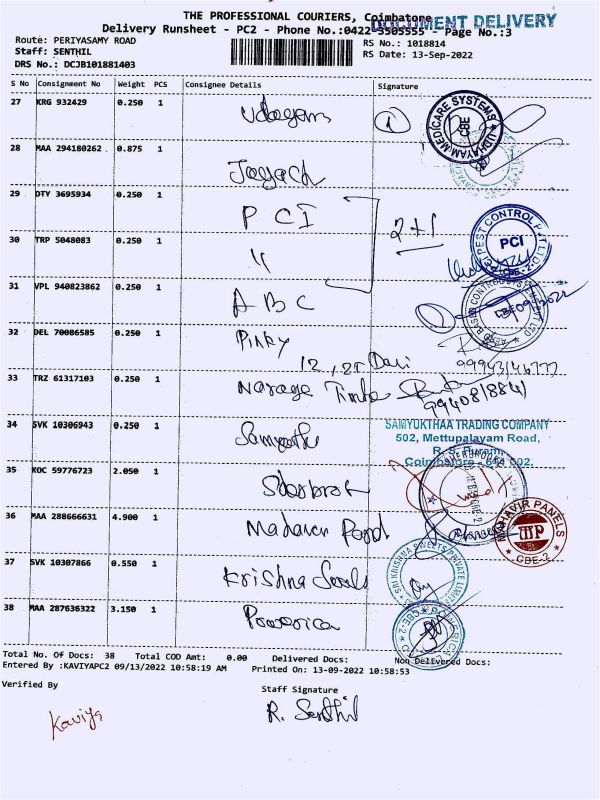 THE PROFESSIONAL COURIERS, Coimbatore
DOCUMENT DELIVERY
Delivery Runsheet - PC2 - Phone No.:0422-3505555 - Page No.:3
Route: PERIYASAMY ROAD
RS No.: 1018814
Staff: SENTHIL
RS Date: 13-Sep-2022
DRS No.: DCJB101881403
S No Consignment No Weight PCS Consignee Details Signature
27 KRG 932429 0.250 1 Udayam 1
UDHAYAM MEDICARE SYSTEMS CBE
28 MAA 294180262 0.875 1
29 DTY 3695934 0.250 1 P C I 2+1
PEST CONTROL PCI CBE-2
30 TRP 5048083 0.250 1 "
31 VPL 940823862 0.250 1 A B C
32 DEL 70086585 0.250 1 Pinky
33 TRZ 61317103 0.250 1
9940818841
34 SVK 10306943 0.250 1
SAMYUKTHAA TRADING COMPANY
502, Mettupalayam Road,
R. S. Puram,
Coimbatore - 641 002.
35 KOC 59776723 2.050 1
36 MAA 288666631 4.900 1
MAHAVIR PANELS MP CBE-2
37 SVK 10307866 0.550 1 Krishna
SRI KRISHNA SWEETS PRIVATE LIMITED
38 MAA 287636322 3.150 1 Powerica
POWERICA CBE-2
Total No. Of Docs: 38 Total COD Amt: 0.00 Delivered Docs: Non Delivered Docs:
Entered By :KAVIYAPC2 09/13/2022 10:58:19 AM Printed On: 13-09-2022 10:58:53
Verified By
Staff Signature
Kaviya
R. Senthil